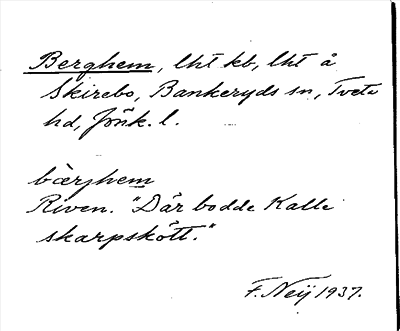 Berghem, lht kb, lht å
Skirebo, Bankeryds sn, Tveta
hd, Jönk. l.
bæ̀rjhem
Riven. "Där bodde Kalle
skarpskött."
F. Neij 1937.